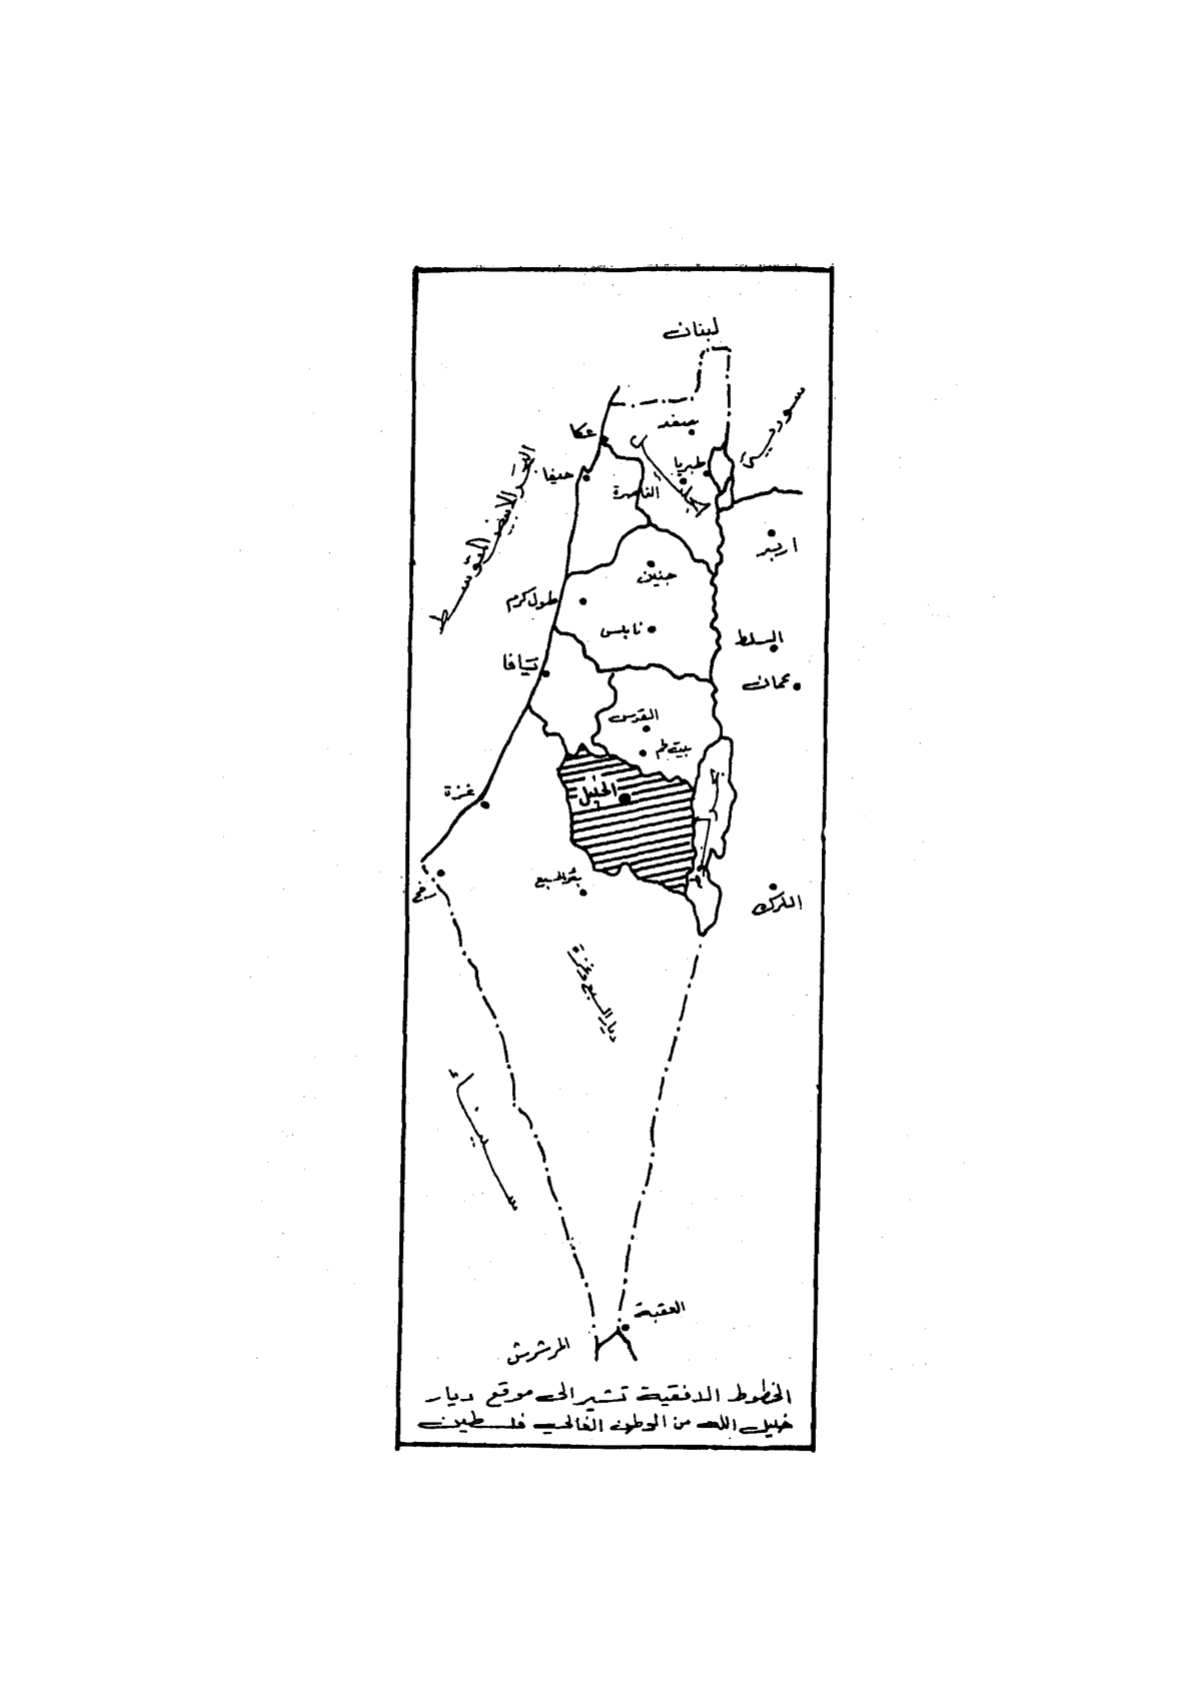 لبنان
سوريـــة
صفد
عكا
طبريا
حيفا
الناصرة
الجليل
البحر الابيض المتوسط
اربد
جنين
طول كرم
نابلس
السلط
يافا
عمان
القدس
بيت لحم
الخليل
غزة
بئر السبع
رفح
الكرك
ديار السبع وغزة
سيناء
العقبة
المرشرش
الخطوط الافقية تشير الى موقع ديار
خليل الله من الوطن الغالي فلسطين